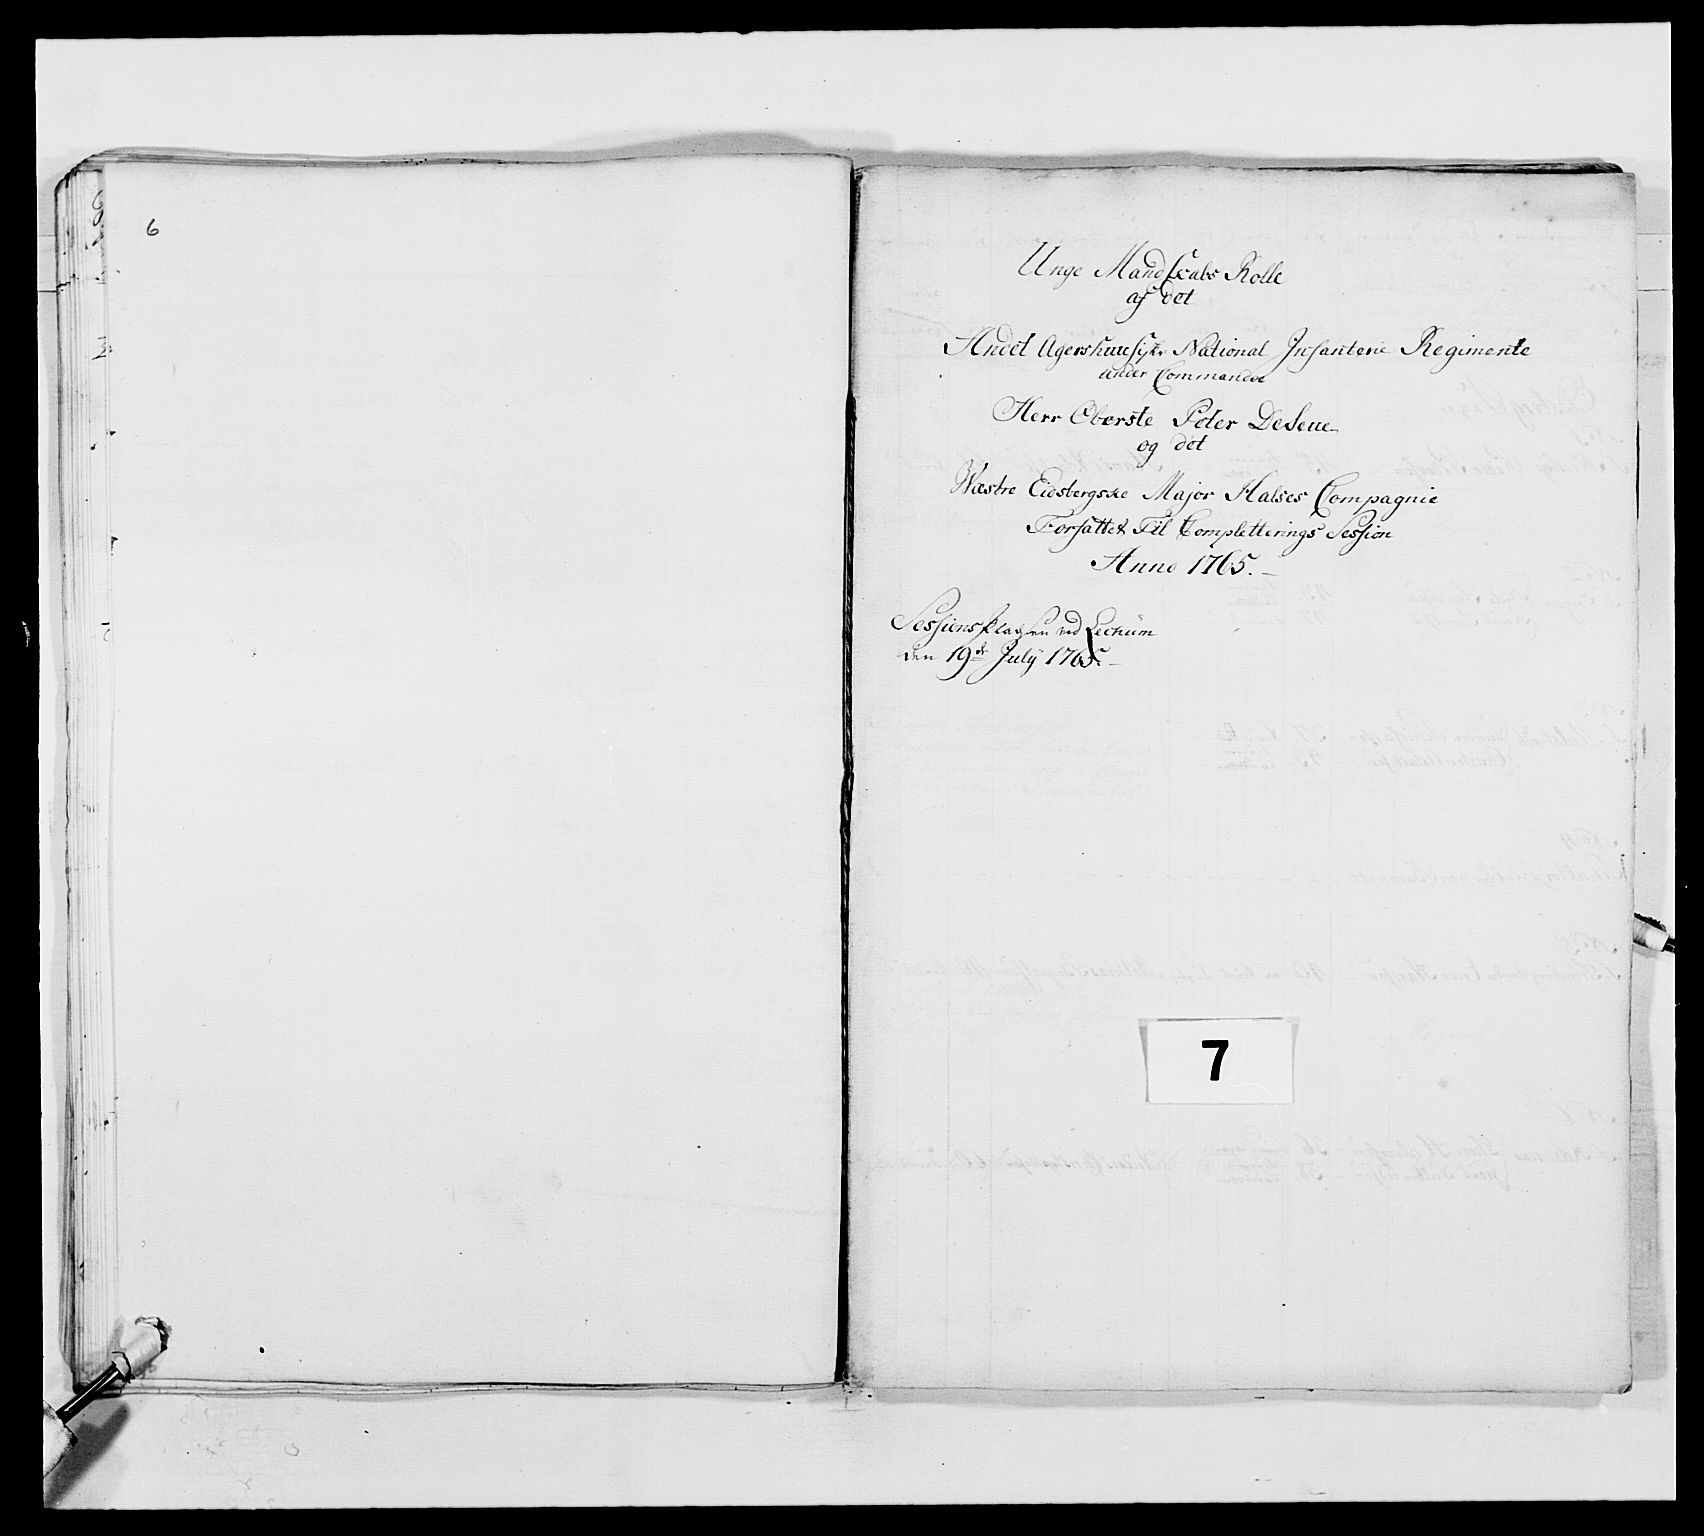 6
Unge Mandscabs Rolle
af det
Andet Agershuusiske National Infanterie Regimente
under Commandoe
Herr Oberste Peter DeSeue
og det
Wæstre Eidsbergske Major Halses Compagnie
Forfattet Til Completterings Session
Anno 1765.
Sessions Pladsen ved Lechum
den 19de July 1765.
7